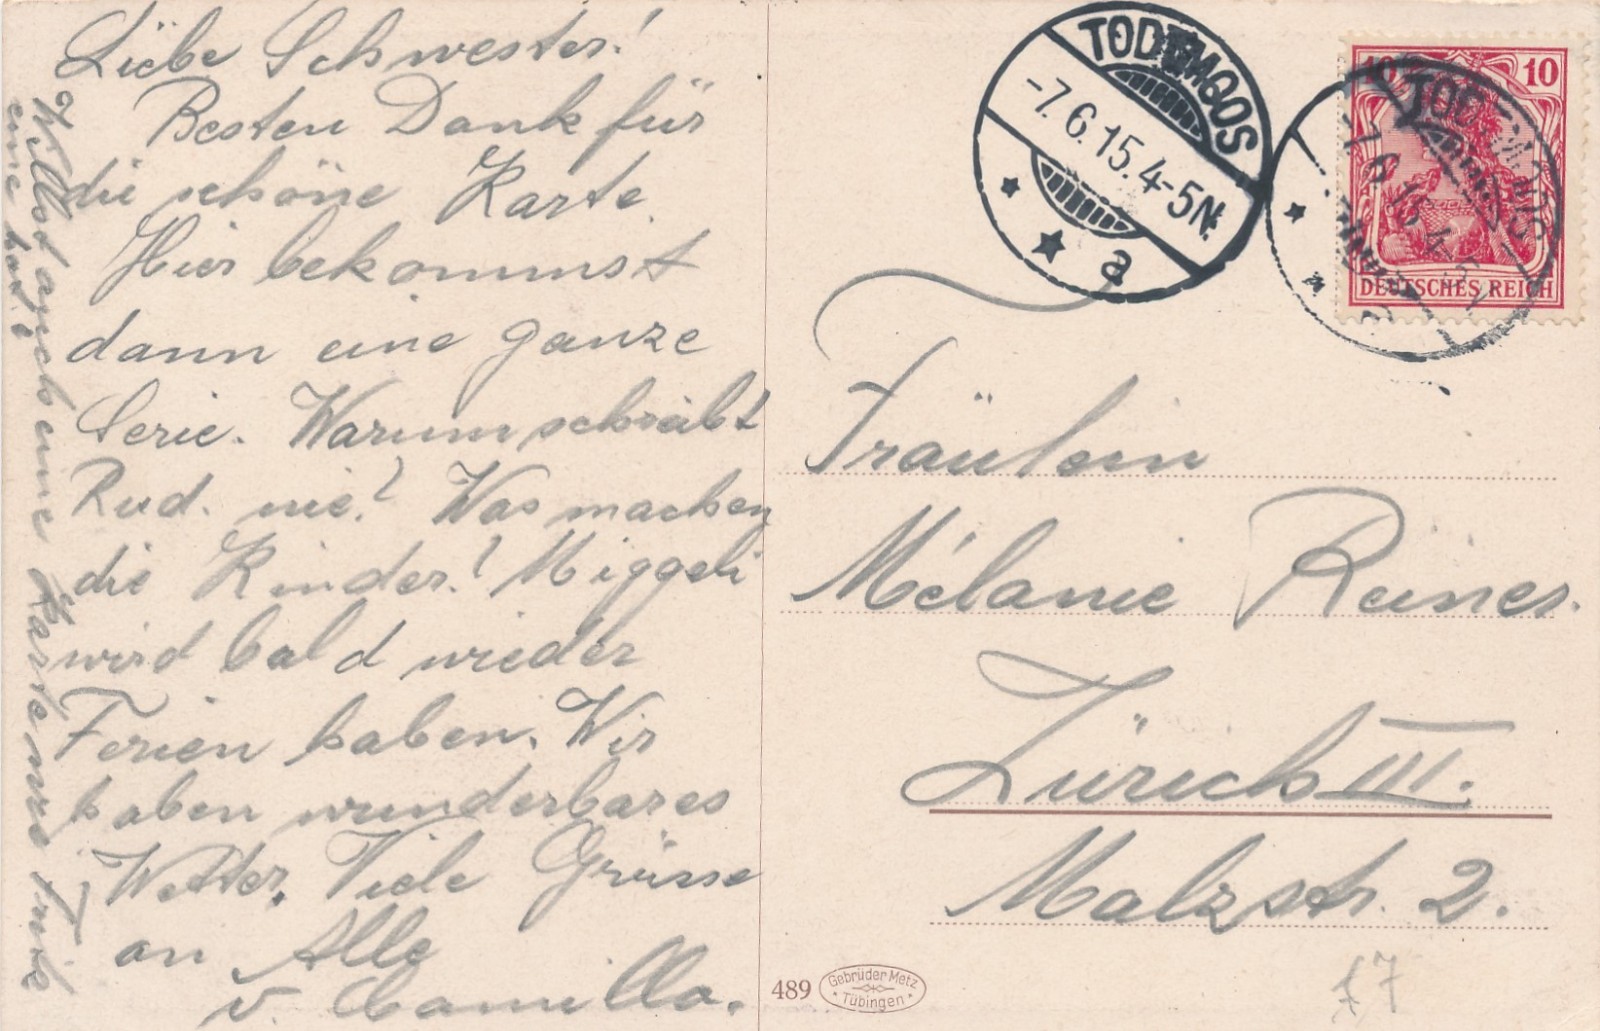 Liebe Schwester!
Besten Dank für
die schöne Karte.
Hier bekommst
dann eine ganze
Serie. Warum schreibt
Rud. nie? Was machen
die Kinder? Miggeli
wird bald wieder
Ferien haben. Wir
haben wunderbares
Wetter. Viele Grüsse
an Alle
v. Camilla.
Willst auch eine Karte wo
eine hat?
TODTMOOS
-7.6.15.4-5N.
a
TODTMOOS
-7.6.15.4-5N.
10 10
DEUTSCHES REICH
Fräulein
Mélanie Reiner.
Zürich III.
Malzstr. 2.
489
Gebrüder Metz
Tübingen